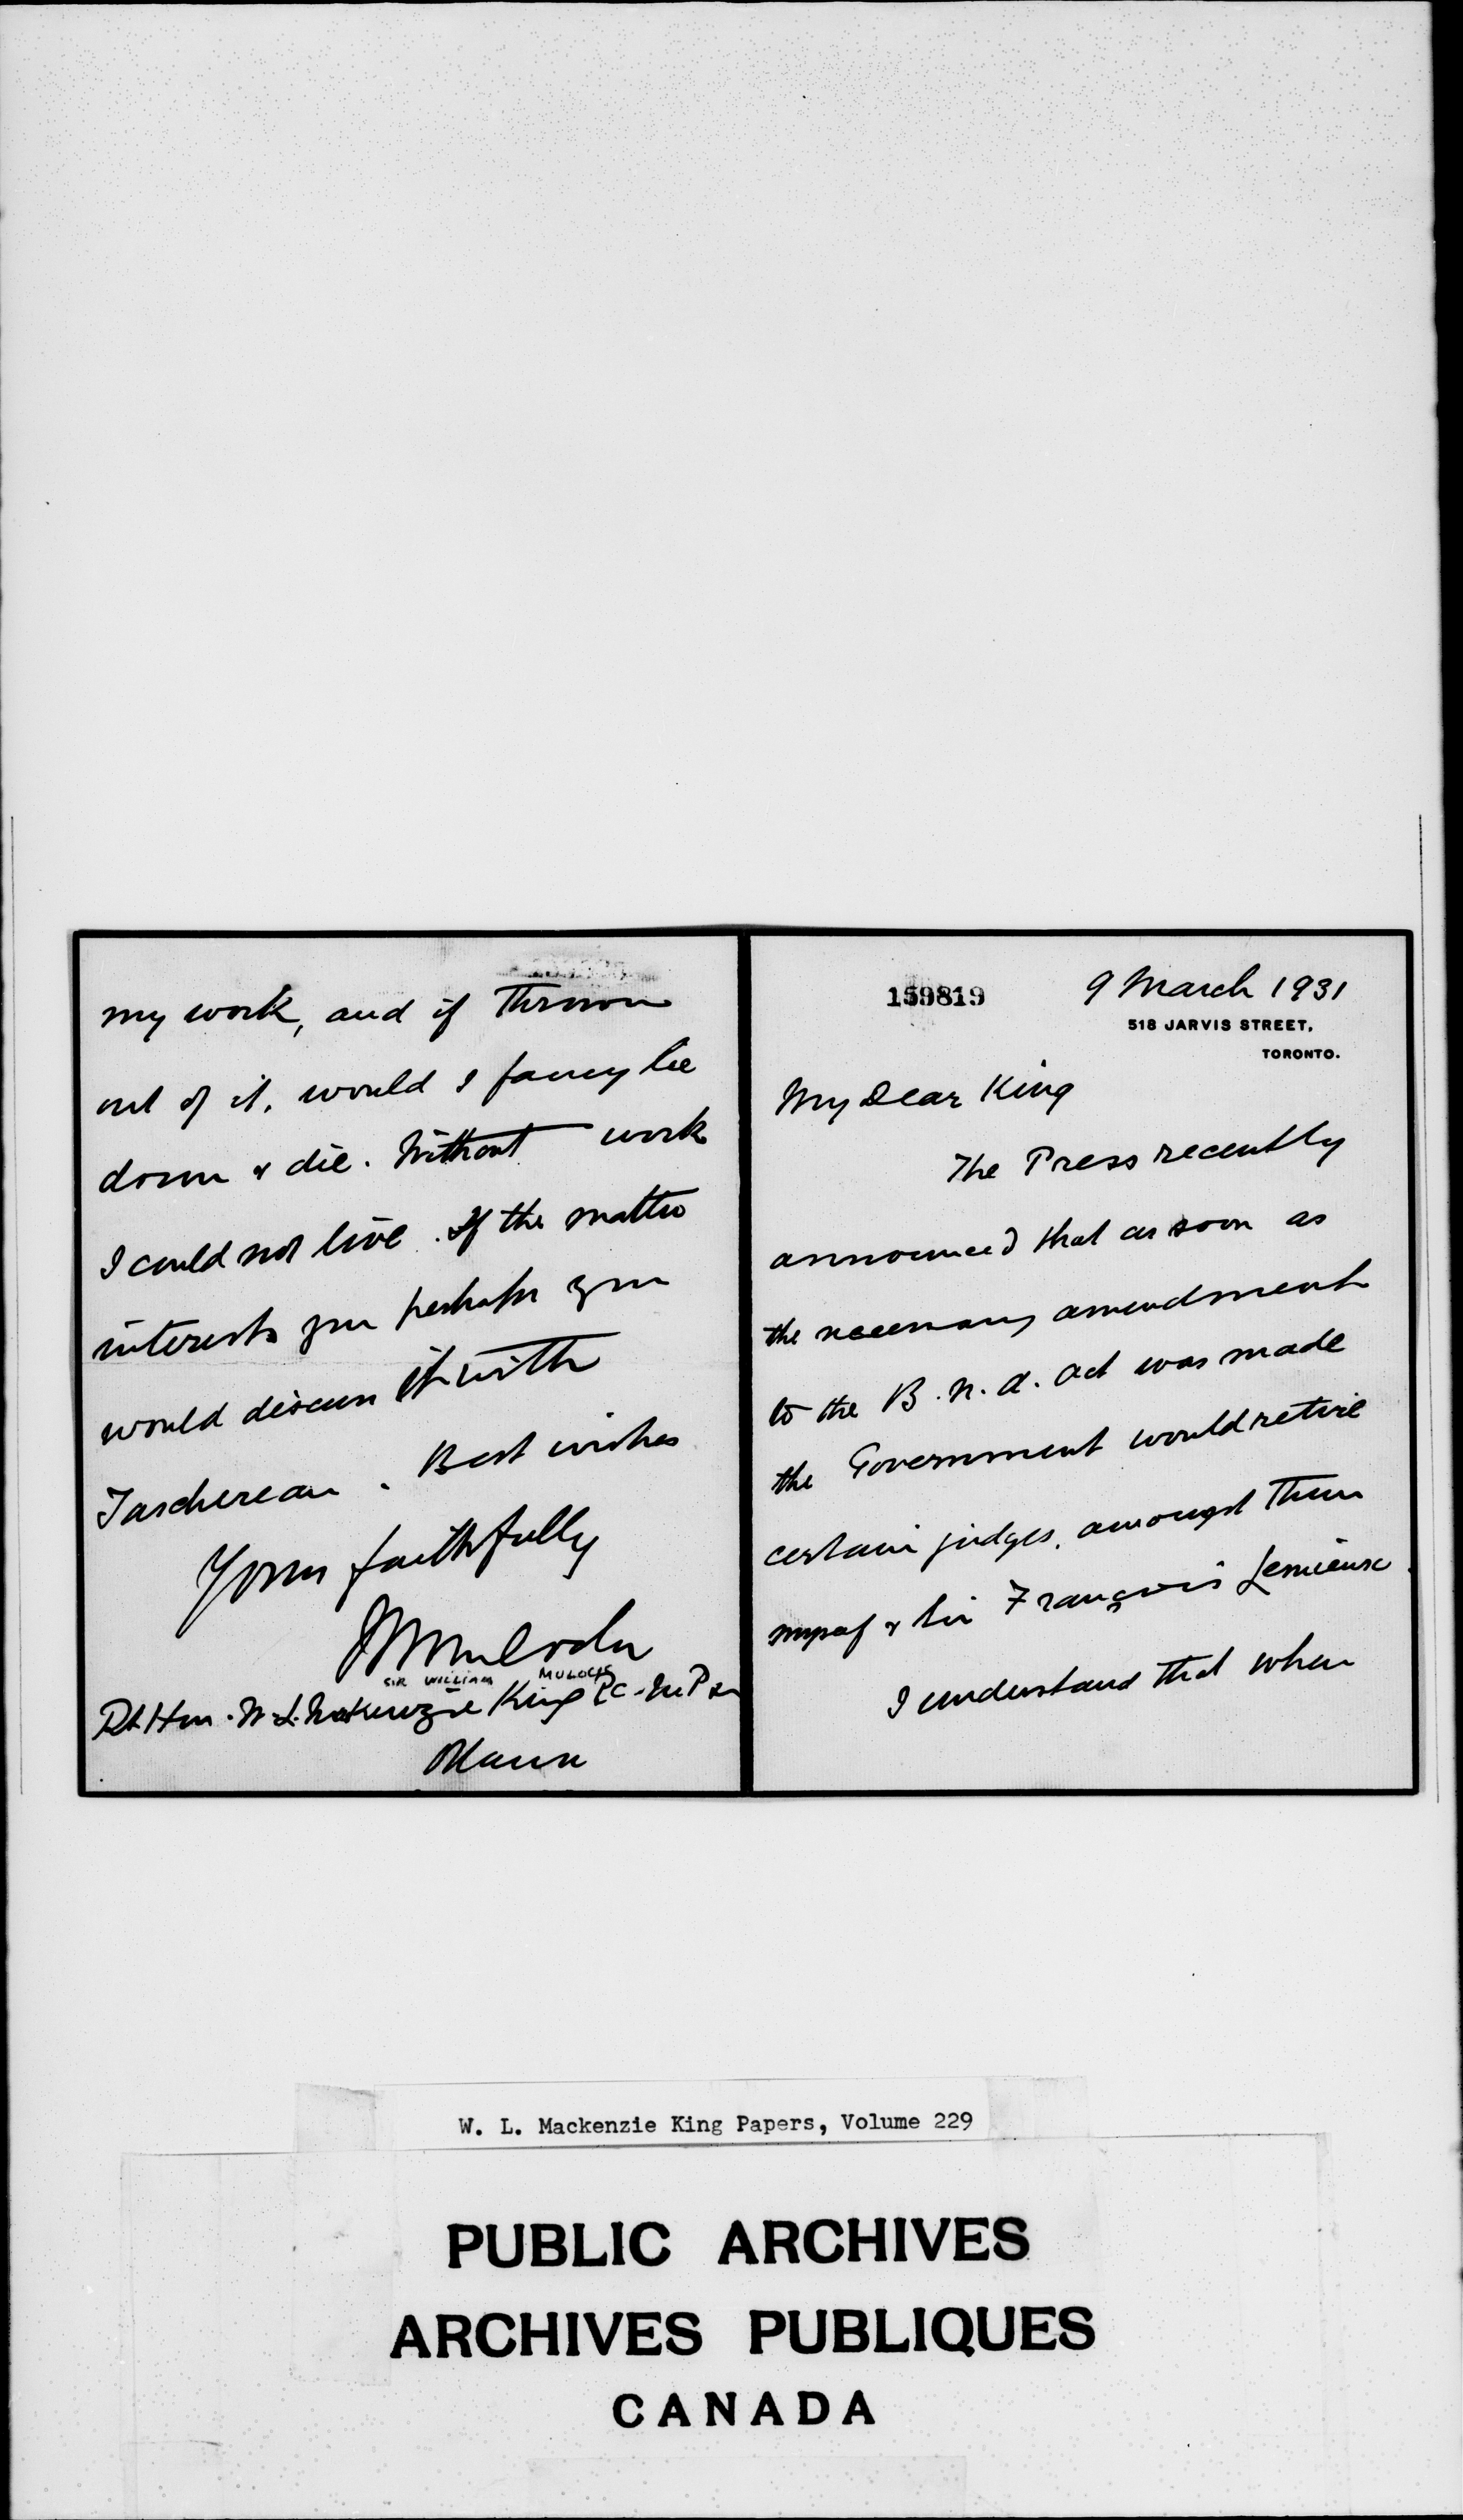 my work, and if thrown
out of it, would I fancy lie
down & die. Without work
I could not live. If the matter
interests you perhaps you
would discuss it with
Taschereau. Best wishes
Yours faithfully
W Mulock
SIR WILLIAM MULOCK
Rt Hon. W. L. Mackenzie King P.C. M.P.
Ottawa
159819
9 March 1931
518 JARVIS STREET,
TORONTO.
My Dear King
The Press recently
announced that as soon as
the necessary amendment
to the B. N. A. Act was made
the Government would retire
certain judges, amongst them
myself & Sir François Lemieux.
I understand that when
W. L. Mackenzie King Papers, Volume 229
PUBLIC ARCHIVES
ARCHIVES PUBLIQUES
CANADA